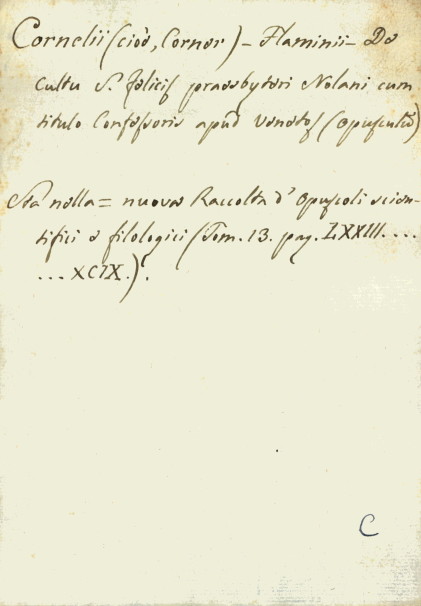 Cornelii (cioè, Corner) - Flaminii - De
cultu S. Felicis praesbyteri Nolani cum
titulo Confessoris apud Venetos (Opusculū)
Sta nella = nuova Raccolta d'Opuscoli scien-
tifici e filologici (Tom. 13. pag. LXXIII....
... XCIX.).
C